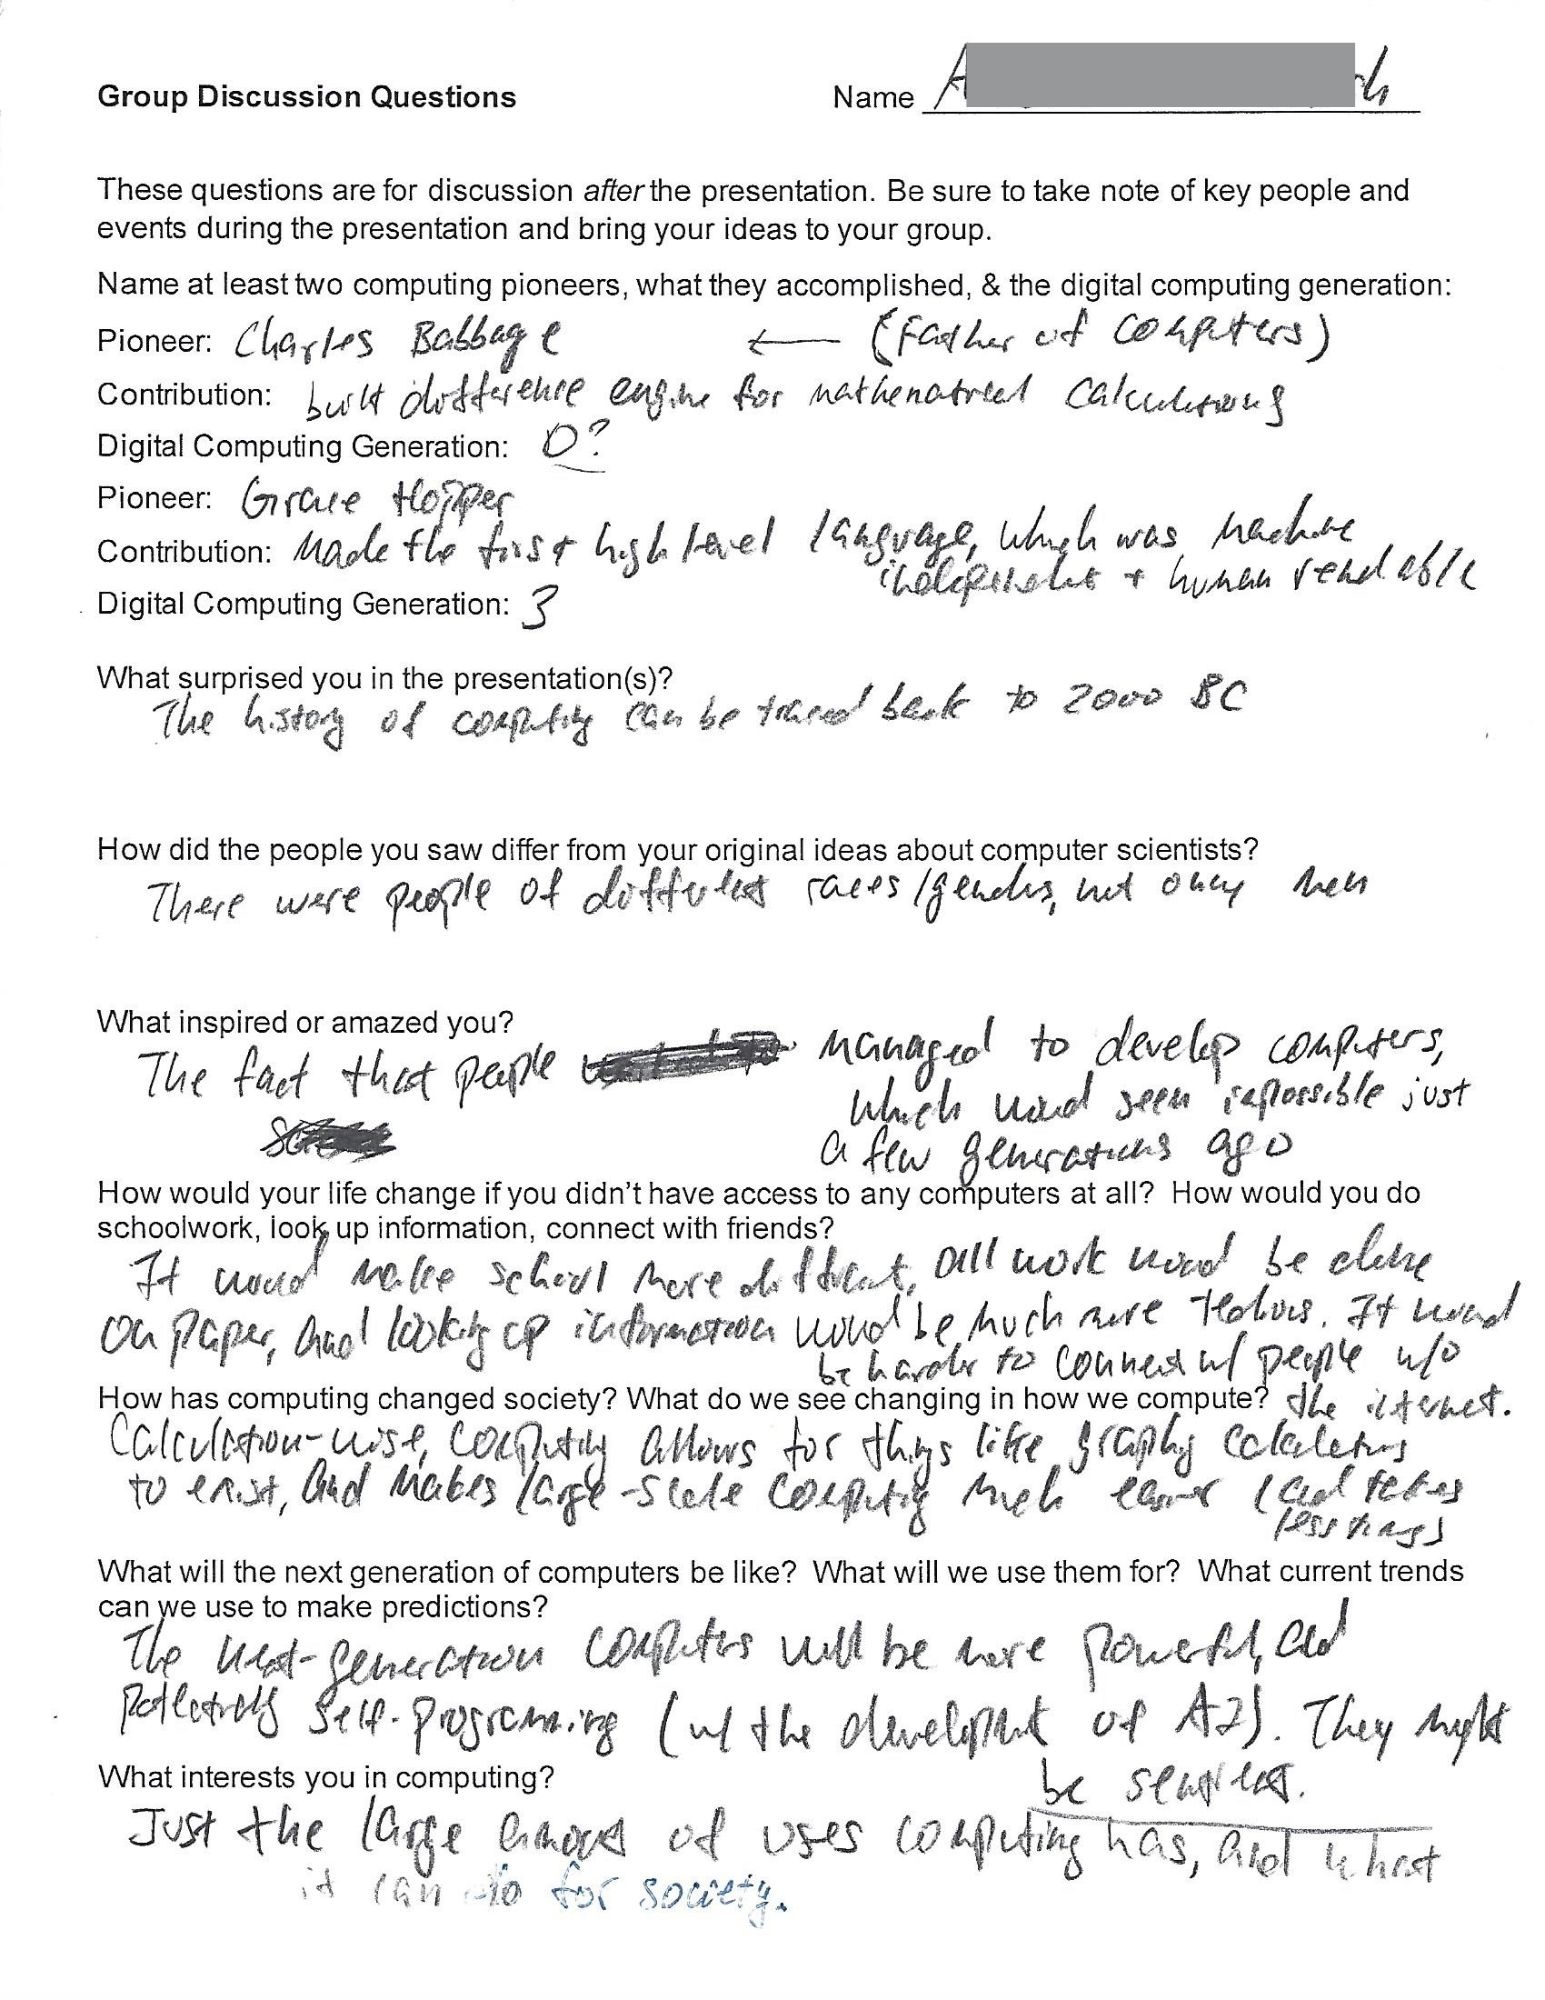 Group Discussion Questions Name A h
These questions are for discussion after the presentation. Be sure to take note of key people and
events during the presentation and bring your ideas to your group.
Name at least two computing pioneers, what they accomplished, & the digital computing generation:
Pioneer: Charles Babbage ← (Father of computers)
Contribution: built difference engine for mathematical calculations
Digital Computing Generation: 0?
Pioneer: Grace Hopper
Contribution: Made the first high level language, which was machine
independent + human readable
Digital Computing Generation: 3
What surprised you in the presentation(s)?
The history of computing can be traced back to 2000 BC
How did the people you saw differ from your original ideas about computer scientists?
There were people of different races/genders, not only men
What inspired or amazed you?
The fact that people managed to develop computers,
which would seem impossible just
a few generations ago
How would your life change if you didn't have access to any computers at all? How would you do
schoolwork, look up information, connect with friends?
It would make school more different, all work would be done
on paper, and looking up information would be much more tedious. It would
be harder to connect w/ people w/o
How has computing changed society? What do we see changing in how we compute? the internet.
Calculation-wise, computing allows for things like graphing calculators
to exist, and makes large-scale computing much easier (and takes
less time)
What will the next generation of computers be like? What will we use them for? What current trends
can we use to make predictions?
The next-generation computers will be more powerful, and
potentially self-programming (w/ the development of AI). They might
be sentient.
What interests you in computing?
Just the large amount of uses computing has, and what
it can do for society.